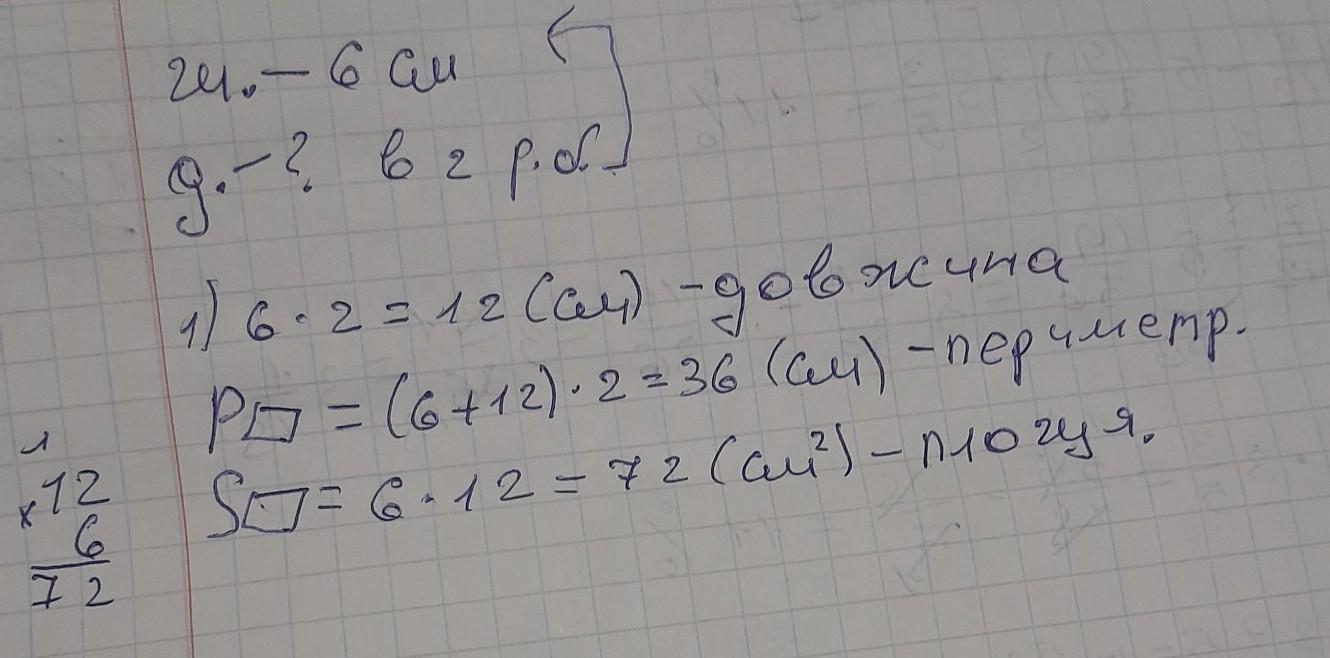 ш. – 6 см
д. – ? в 2 р. б.
1) 6 · 2 = 12 (см) – довжина
P▭ = (6 + 12) · 2 = 36 (см) – периметр.
S▭ = 6 · 12 = 72 (см²) – площа.
1
×12
6
72